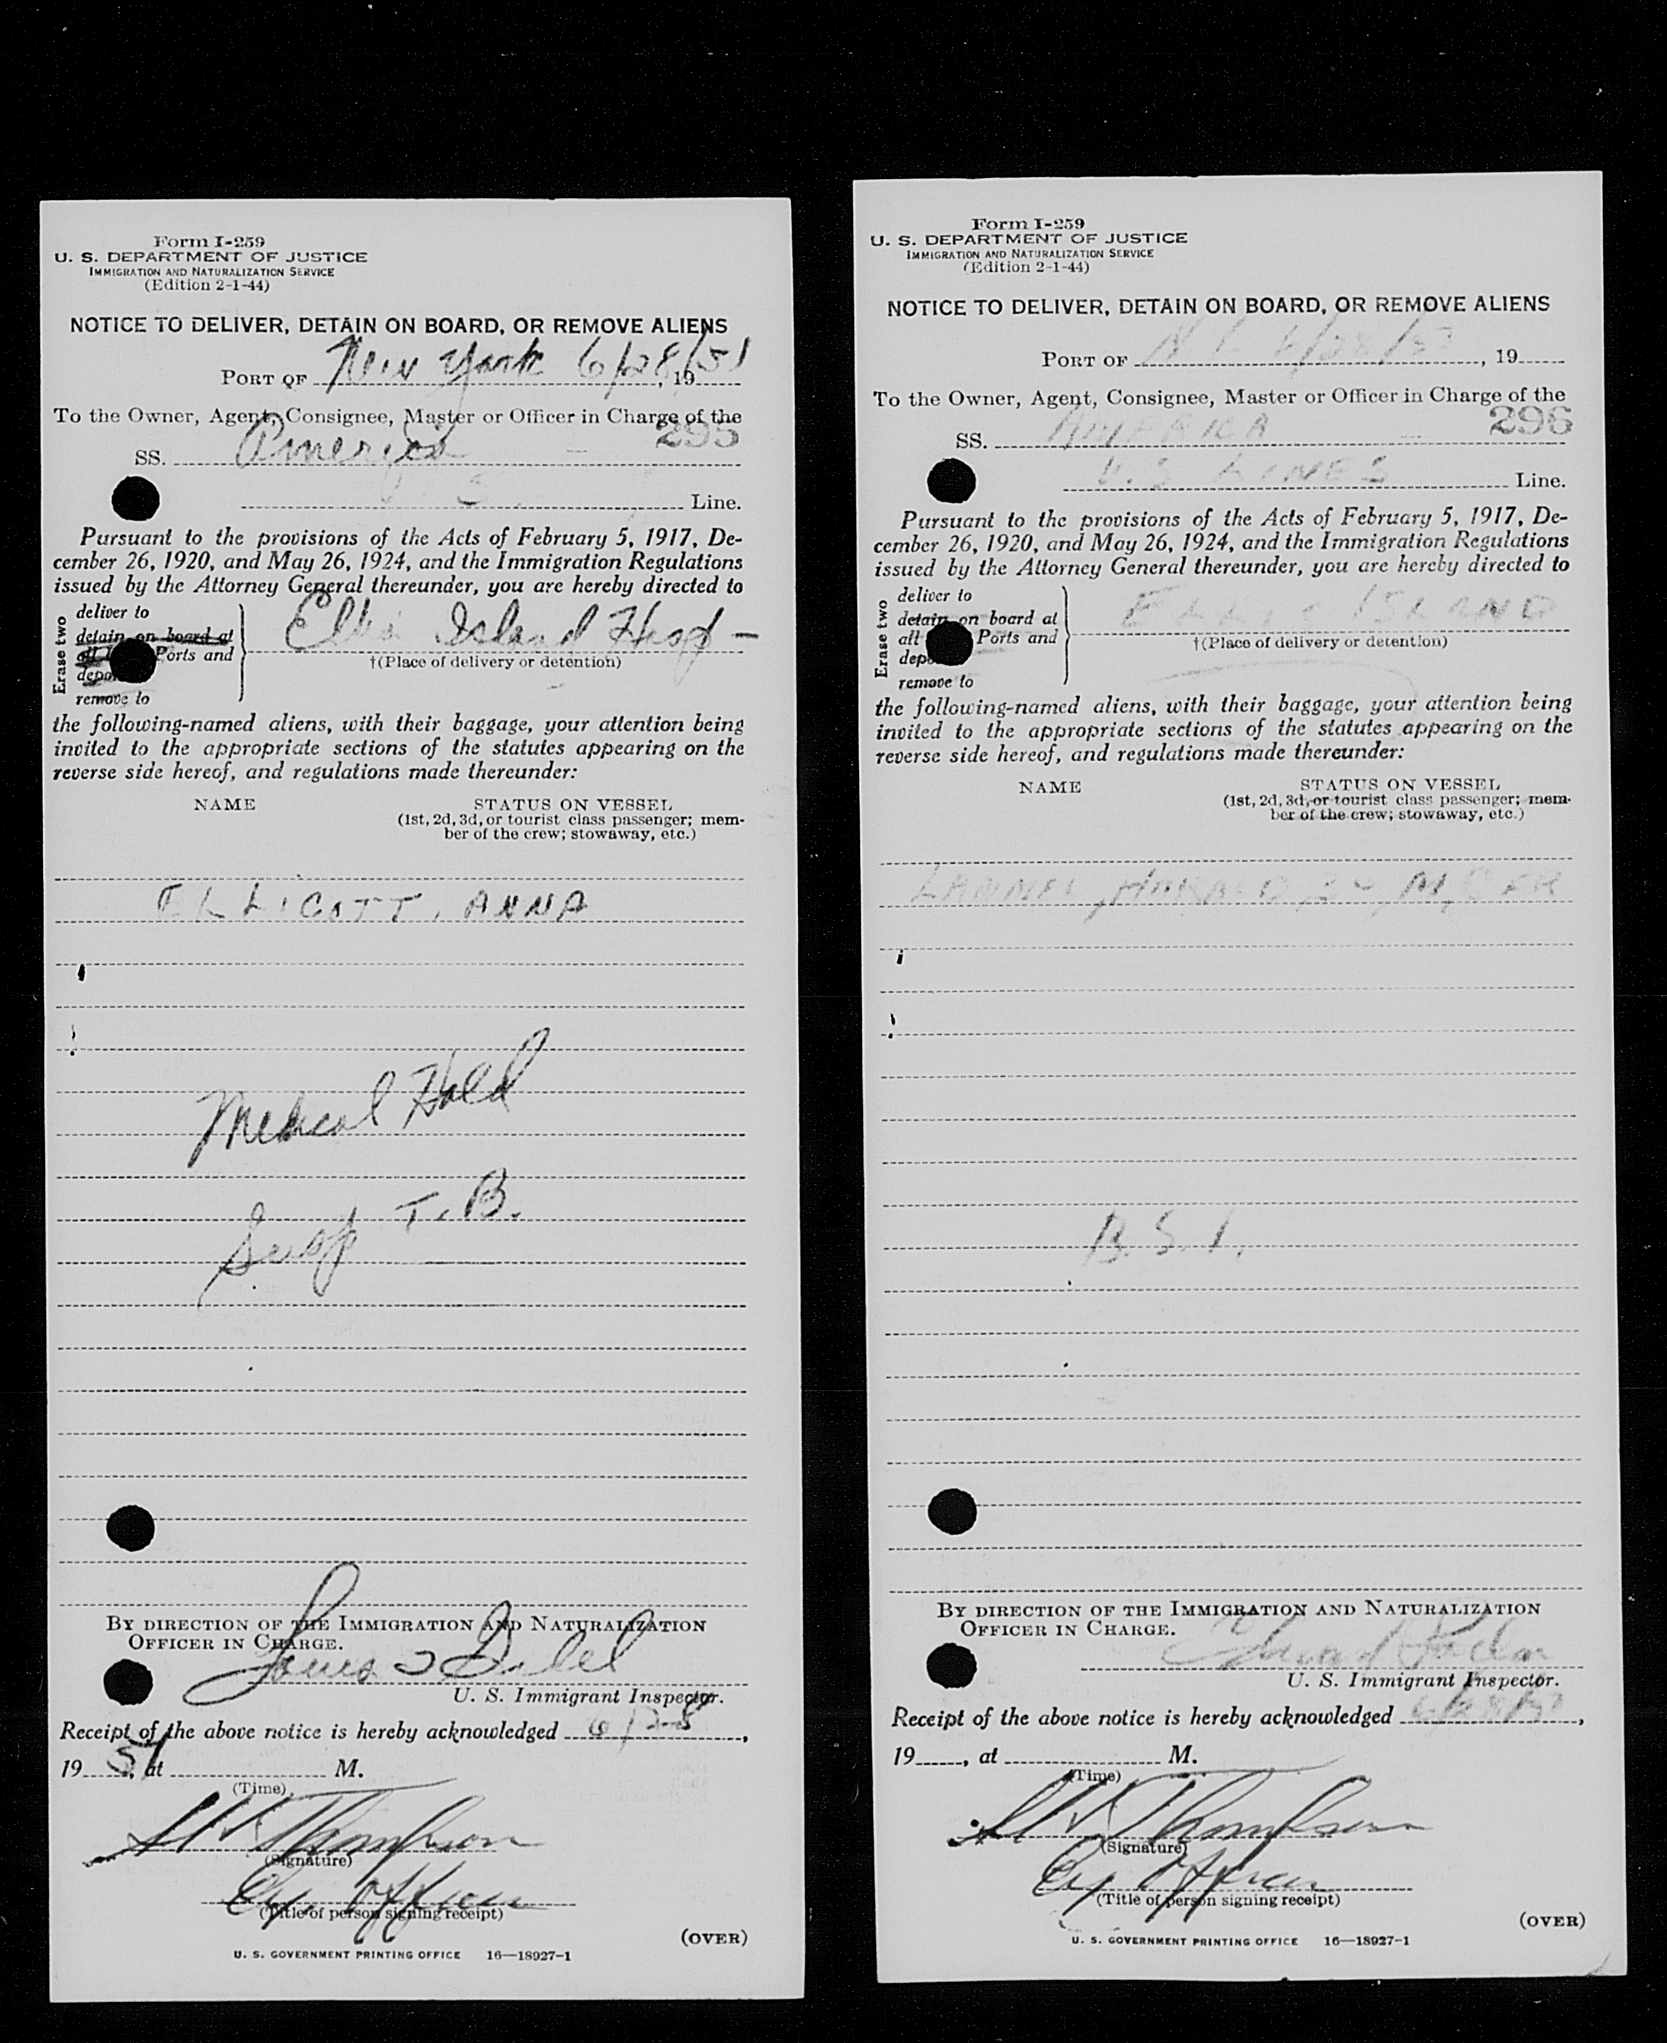 Form I-259
U. S. DEPARTMENT OF JUSTICE
IMMIGRATION AND NATURALIZATION SERVICE
(Edition 2-1-44)
NOTICE TO DELIVER, DETAIN ON BOARD, OR REMOVE ALIENS
PORT OF New York 6/28/51, 19
To the Owner, Agent, Consignee, Master or Officer in Charge of the
295
SS. America
Line.
Pursuant to the provisions of the Acts of February 5, 1917, De-
cember 26, 1920, and May 26, 1924, and the Immigration Regulations
issued by the Attorney General thereunder, you are hereby directed to
Erase two
deliver to
detain on board at
all Ports and
remove to
Ellis Island Hosp -
†(Place of delivery or detention)
the following-named aliens, with their baggage, your attention being
invited to the appropriate sections of the statutes appearing on the
reverse side hereof, and regulations made thereunder:
NAME
STATUS ON VESSEL
(1st, 2d, 3d, or tourist class passenger; mem-
ber of the crew; stowaway, etc.)
ELLICOTT, ANNA
Medical Hold
Susp T. B.
BY DIRECTION OF THE IMMIGRATION AND NATURALIZATION
OFFICER IN CHARGE.
Louis
U. S. Immigrant Inspector.
Receipt of the above notice is hereby acknowledged 6/28,
19 51, at M.
(Time)
Thompson
(Signature)
Officer
(Title of person signing receipt)
(OVER)
U. S. GOVERNMENT PRINTING OFFICE 16—18927-1
Form I-259
U. S. DEPARTMENT OF JUSTICE
IMMIGRATION AND NATURALIZATION SERVICE
(Edition 2-1-44)
NOTICE TO DELIVER, DETAIN ON BOARD, OR REMOVE ALIENS
PORT OF , 19
To the Owner, Agent, Consignee, Master or Officer in Charge of the
296
SS. AMERICA
U.S LINES Line.
Pursuant to the provisions of the Acts of February 5, 1917, De-
cember 26, 1920, and May 26, 1924, and the Immigration Regulations
issued by the Attorney General thereunder, you are hereby directed to
Erase two
deliver to
detain on board at
all Ports and
remove to
ELLIS ISLAND
†(Place of delivery or detention)
the following-named aliens, with their baggage, your attention being
invited to the appropriate sections of the statutes appearing on the
reverse side hereof, and regulations made thereunder:
NAME
STATUS ON VESSEL
(1st, 2d, 3d, or tourist class passenger; mem-
ber of the crew; stowaway, etc.)
B. S. I.
BY DIRECTION OF THE IMMIGRATION AND NATURALIZATION
OFFICER IN CHARGE.
U. S. Immigrant Inspector.
Receipt of the above notice is hereby acknowledged ,
19 , at M.
(Time)
Thompson
(Signature)
Officer
(Title of person signing receipt)
(OVER)
U. S. GOVERNMENT PRINTING OFFICE 16—18927-1